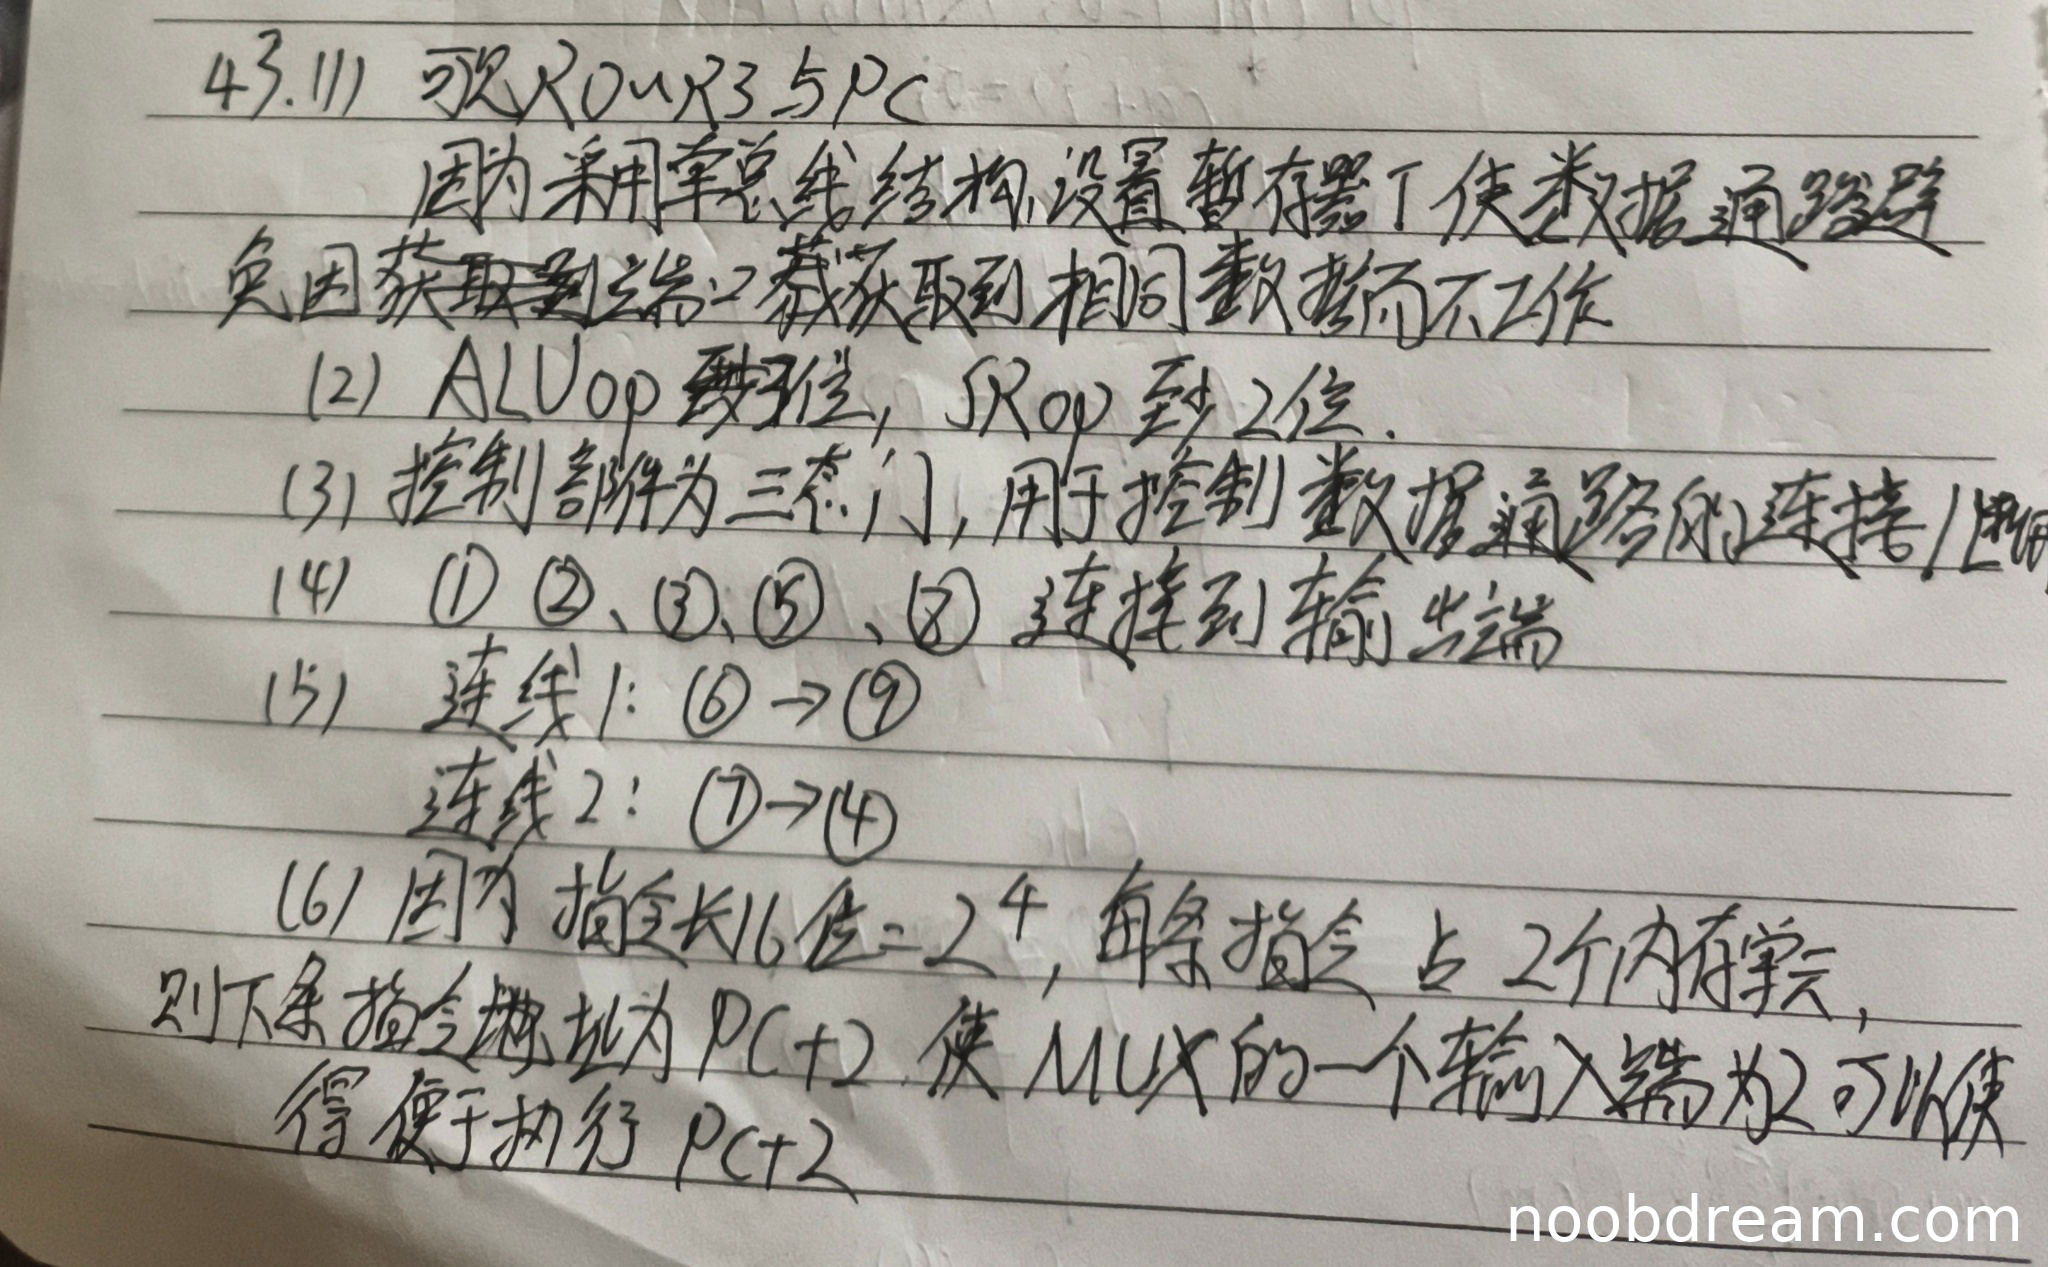 43.(1) 可见R0~R3与PC
因为采用单总线结构,设置暂存器T使数据通路避
免因端2获取到相同数据而不工作
(2) ALUop 至少3位, SRop 至少2位.
(3) 控制部件为三态门, 用于控制数据通路的连接/
(4) ① ②、③、⑤、⑧ 连接到输出端
(5) 连线1: ⑥→⑨
连线2: ⑦→④
(6) 因为指令长16位=2⁴, 每条指令占2个内存单元,
则下条指令地址为PC+2.使MUX的一个输入端为2可以使
得便于执行PC+2
noobdream.com